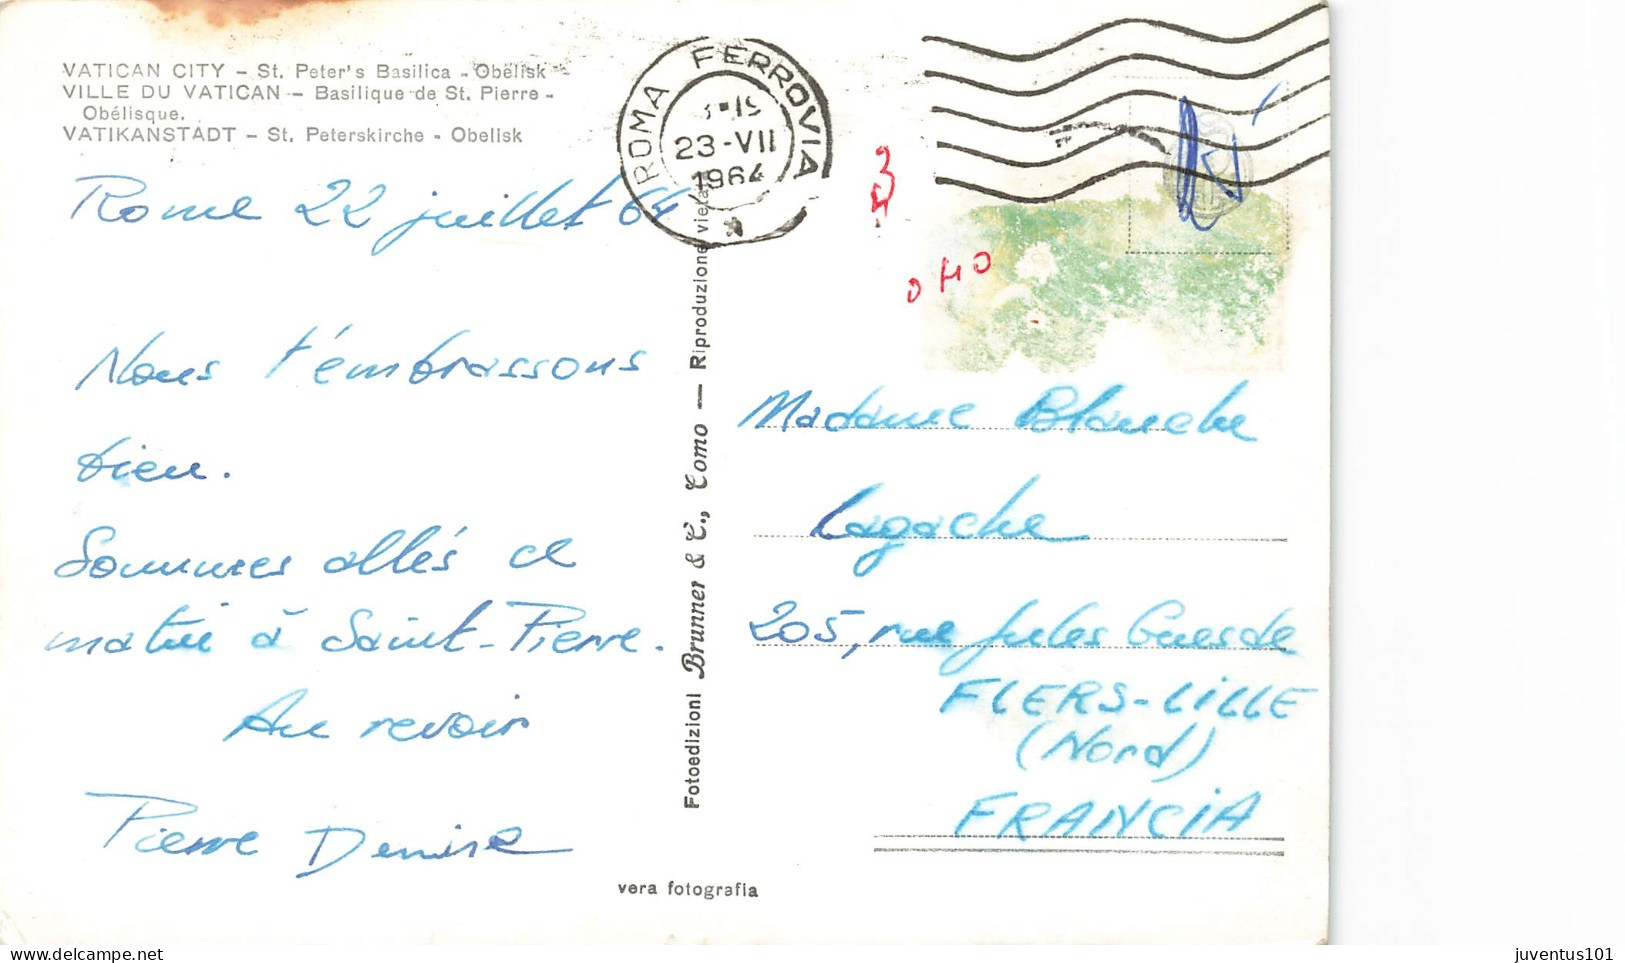 VATICAN CITY – St. Peter's Basilica - Obelisk -
VILLE DU VATICAN – Basilique de St. Pierre -
Obélisque.
VATIKANSTADT – St. Peterskirche - Obelisk
ROMA FERROVIA
23-VII
1964
Rome 22 juillet 64
Nous t'embrassons
bien.
Sommes allés ce
matin à Saint-Pierre.
Au revoir
Pierre Denise
Fotoedizioni Brunner & C., Como — Riproduzione vietata
vera fotografia
Madame Blanche
Lagache
205, rue Jules Guesde
FLERS-LILLE
(Nord)
FRANCIA
juventus101